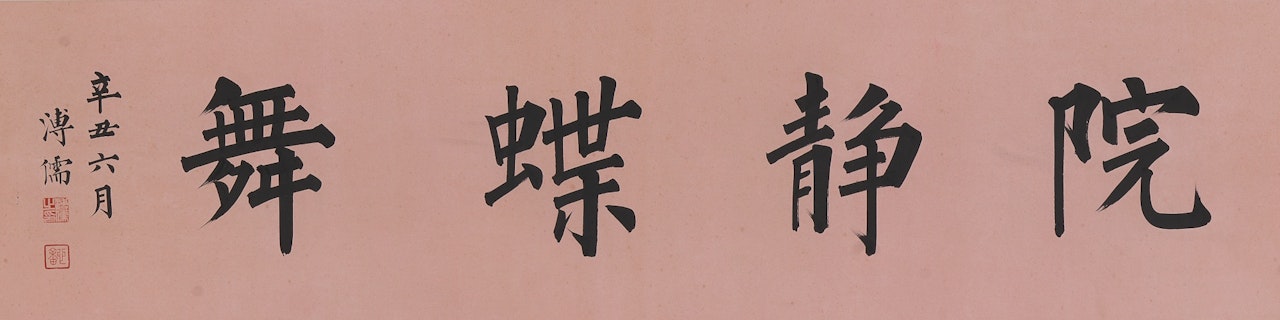 院静蝶舞
辛丑六月
溥儒